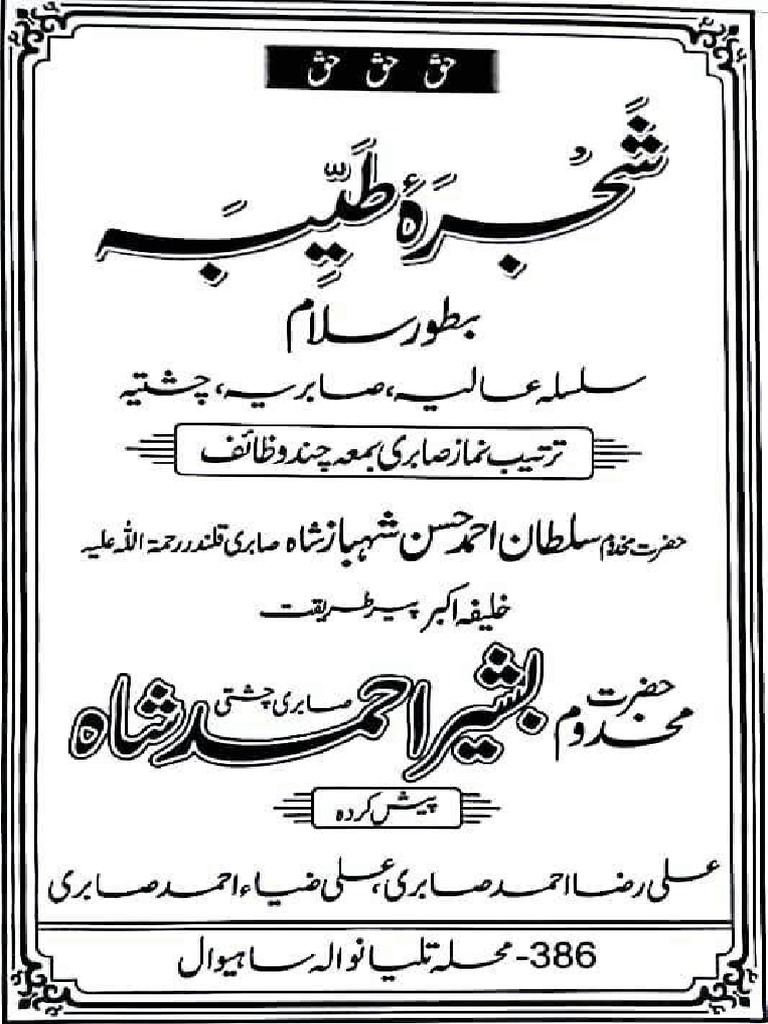 حق حق حق
شَجرَۂ طَیِّبَہ
بطور سلام
سلسلہ عالیہ، صابریہ، چشتیہ
ترتیب نماز صابری بمعہ چند وظائف
حضرت مخدوم سلطان احمد حسن شہباز شاہ صابری قلندر رحمۃ اللہ علیہ
خلیفہ اکبر پیر طریقت
حضرت مخدوم بشیر احمد شاہ صابری چشتی
پیش کردہ
علی رضا احمد صابری، علی ضیاء احمد صابری
386- محلہ تلیانوالہ ساہیوال